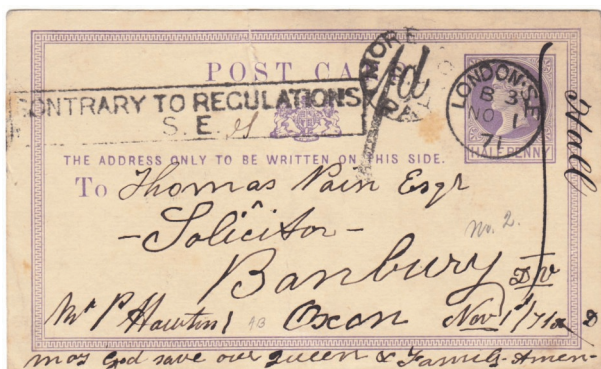 POST CA
MORE
1d
CONTRARY TO REGULATIONS
S. E.
LONDON·S.E
B 3
NO 1
71
HALFPENNY
THE ADDRESS ONLY TO BE WRITTEN ON THIS SIDE.
To Thomas Pain Esqr
- Solicitor -
No. 2.
Banbury
D V
Mr P Hawtin
Oxon
Nov 1/71
Hall
may God save our Queen & Family - Amen -